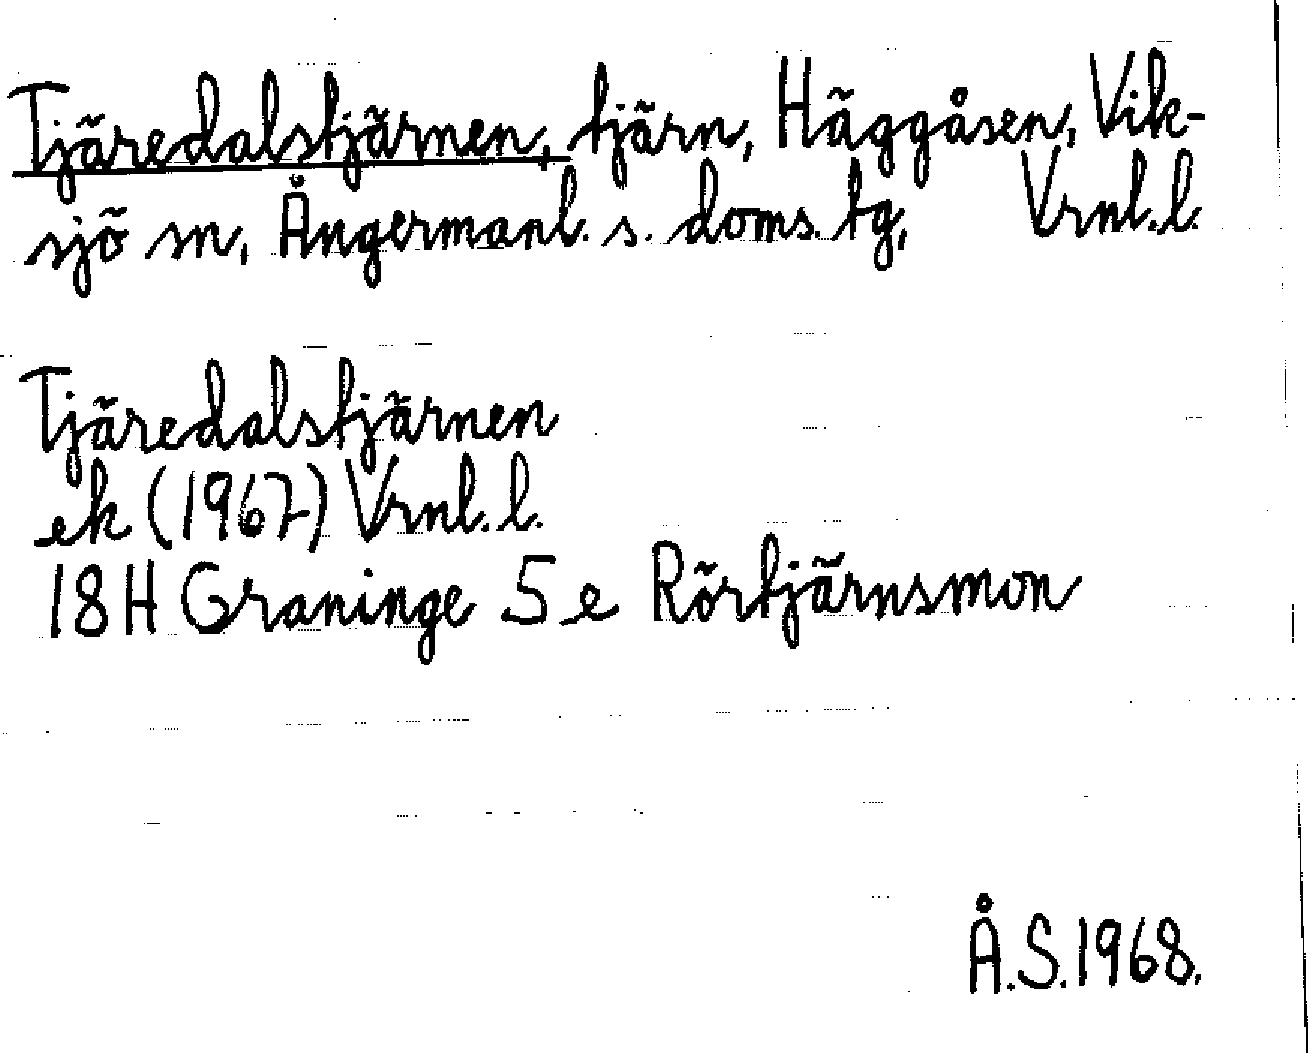 Tjäredalstjärnen, tjärn, Häggåsen, Vik-
sjö sn, Ångermanl. s. doms. tg, Vrnl. l.
Tjäredalstjärnen
ek (1967) Vrnl. l.
18H Graninge 5 e Rörtjärnsmon
Å.S.1968.